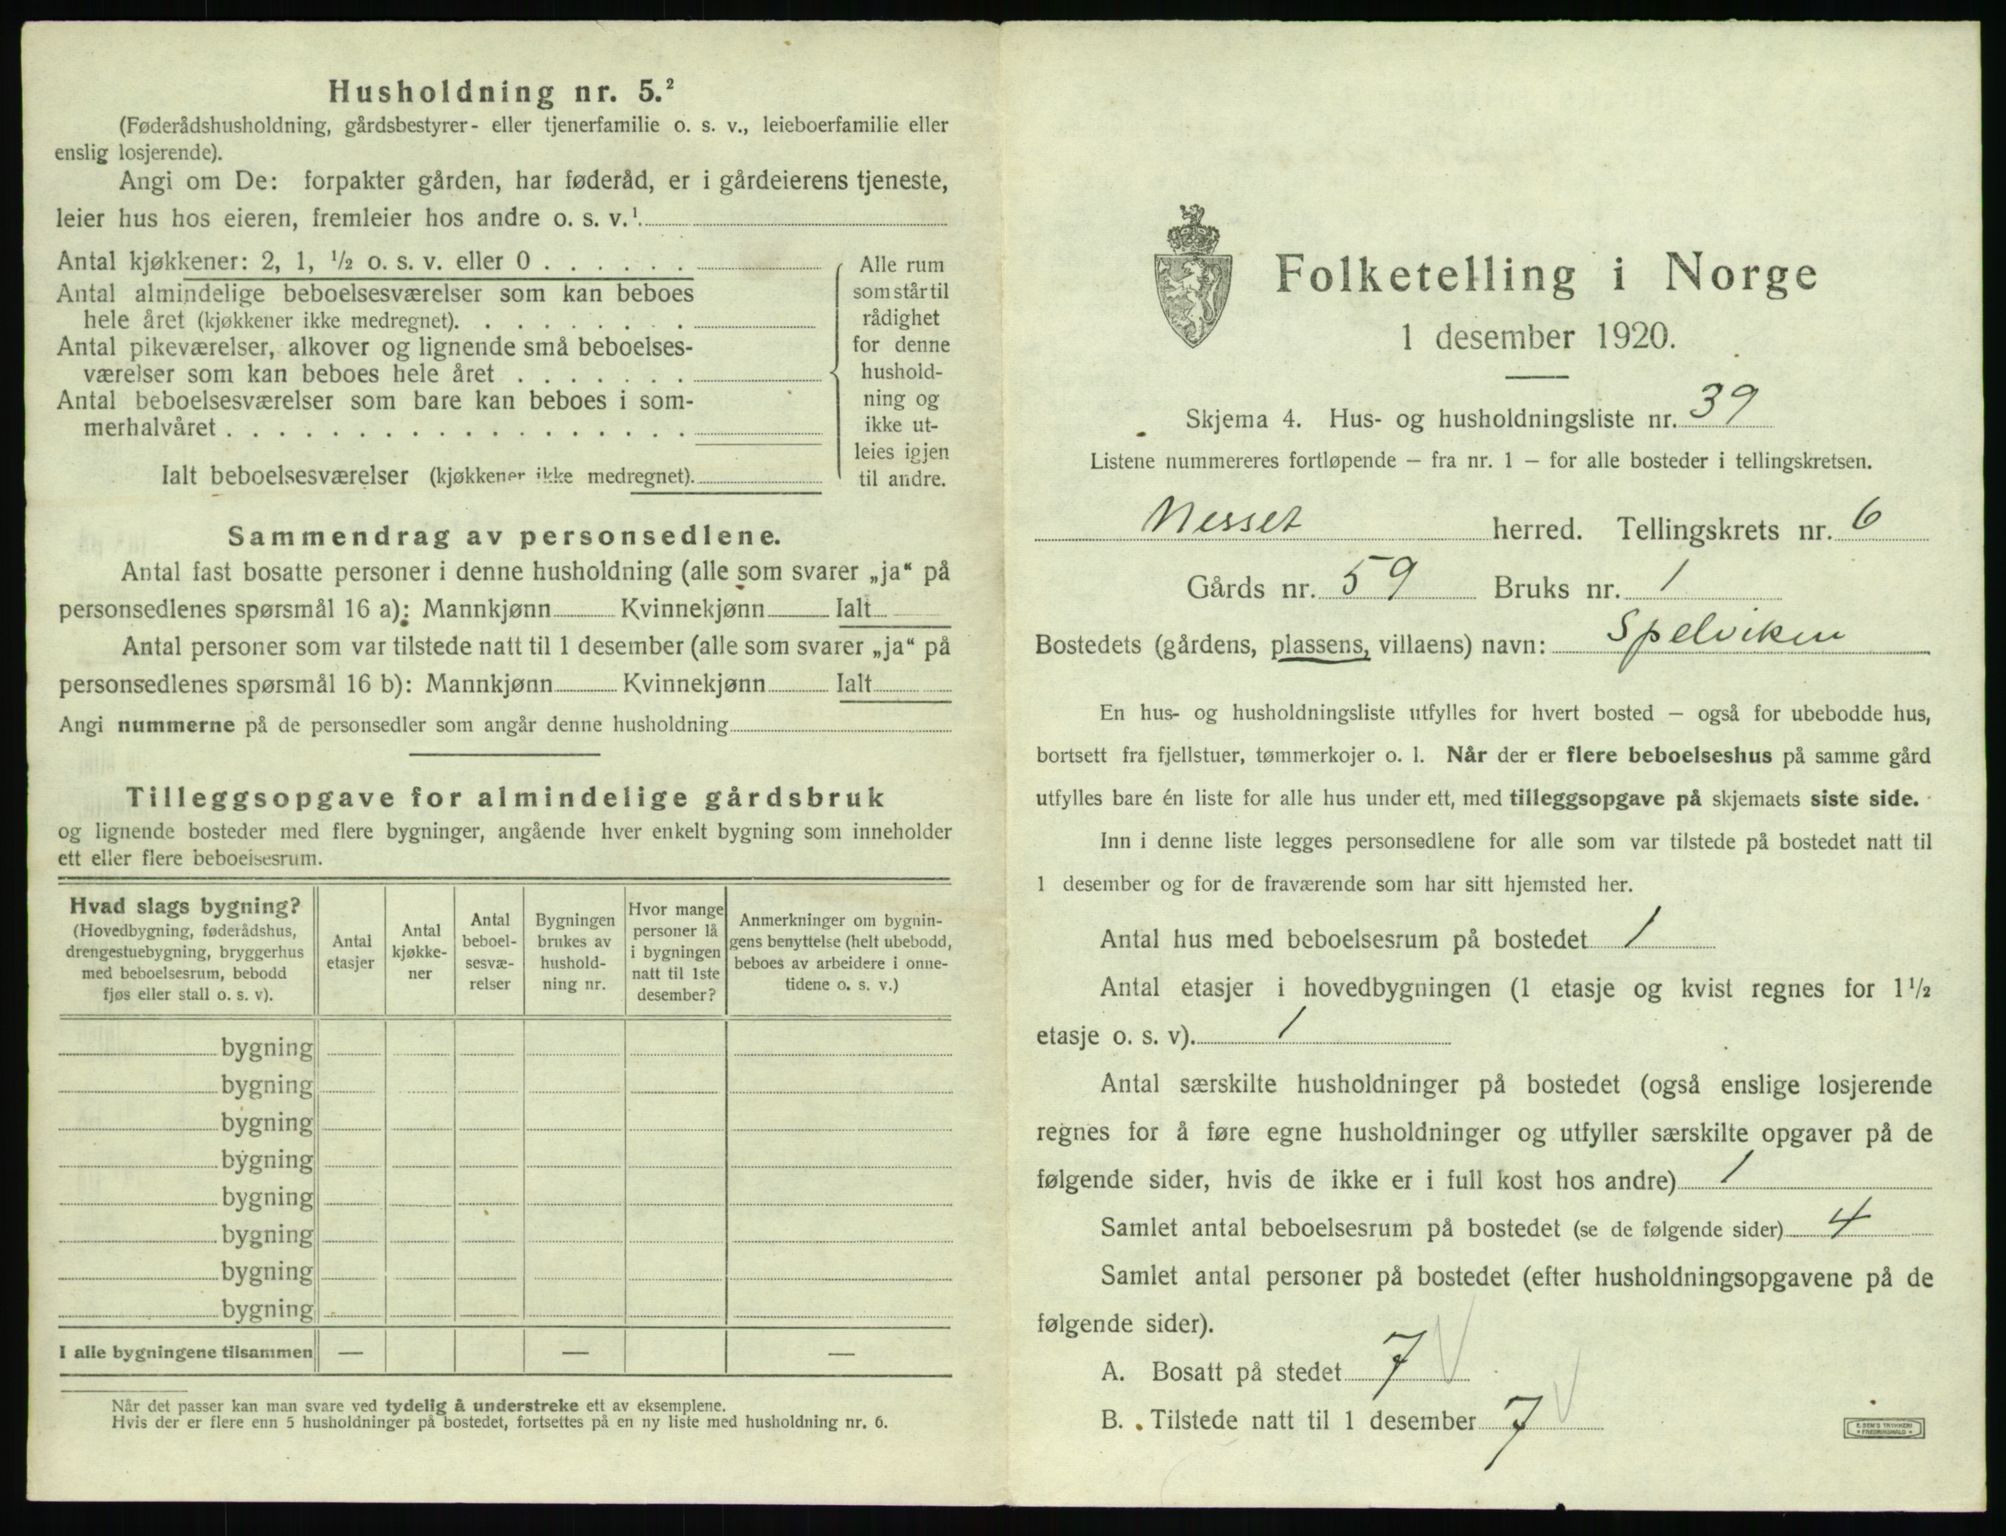 Husholdning nr. 5.²
(Føderådshusholdning, gårdsbestyrer- eller tjenerfamilie o. s. v., leieboerfamilie eller
enslig losjerende).
Angi om De: forpakter gården, har føderåd, er i gårdeierens tjeneste,
leier hus hos eieren, fremleier hos andre o. s. v.¹
Antal kjøkkener: 2, 1, ½ o. s. v. eller 0 . . . . . .
Antal almindelige beboelsesværelser som kan beboes
hele året (kjøkkener ikke medregnet). . . . . . . . .
Antal pikeværelser, alkover og lignende små beboelses-
værelser som kan beboes hele året . . . . . . .
Antal beboelsesværelser som bare kan beboes i som-
merhalvåret . . . . . . . . . . . . . . . . . .
Ialt beboelsesværelser (kjøkkener ikke medregnet).
Alle rum
som står til
rådighet
for denne
hushold-
ning og
ikke ut-
leies igjen
til andre.
Sammendrag av personsedlene.
Antal fast bosatte personer i denne husholdning (alle som svarer „ja“ på
personsedlenes spørsmål 16 a): Mannkjønn Kvinnekjønn Ialt
Antal personer som var tilstede natt til 1 desember (alle som svarer „ja“ på
personsedlenes spørsmål 16 b): Mannkjønn Kvinnekjønn Ialt
Angi nummerne på de personsedler som angår denne husholdning
Tilleggsopgave for almindelige gårdsbruk
og lignende bosteder med flere bygninger, angående hver enkelt bygning som inneholder
ett eller flere beboelsesrum.
Hvad slags bygning?
(Hovedbygning, føderådshus,
drengestuebygning, bryggerhus
med beboelsesrum, bebodd
fjøs eller stall o. s. v).
Antal
etasjer
Antal
kjøkke-
ner
Antal
beboel-
sesvæ-
relser
Bygningen
brukes av
hushold-
ning nr.
Hvor mange
personer lå
i bygningen
natt til 1ste
desember?
Anmerkninger om bygnin-
gens benyttelse (helt ubebodd,
beboes av arbeidere i onne-
tidene o. s. v.)
bygning
bygning
bygning
bygning
bygning
bygning
bygning
bygning
I alle bygningene tilsammen — — —
Når det passer kan man svare ved tydelig å understreke ett av eksemplene.
Hvis der er flere enn 5 husholdninger på bostedet, fortsettes på en ny liste med husholdning nr. 6.
Folketelling i Norge
1 desember 1920.
Skjema 4. Hus- og husholdningsliste nr. 39
Listene nummereres fortløpende – fra nr. 1 – for alle bosteder i tellingskretsen.
Nesset herred. Tellingskrets nr. 6
Gårds nr. 59 Bruks nr. 1
Bostedets (gårdens, plassens, villaens) navn: Spelviken
En hus- og husholdningsliste utfylles for hvert bosted – også for ubebodde hus,
bortsett fra fjellstuer, tømmerkojer o. l. Når der er flere beboelseshus på samme gård
utfylles bare én liste for alle hus under ett, med tilleggsopgave på skjemaets siste side.
Inn i denne liste legges personsedlene for alle som var tilstede på bostedet natt til
1 desember og for de fraværende som har sitt hjemsted her.
Antal hus med beboelsesrum på bostedet 1
Antal etasjer i hovedbygningen (1 etasje og kvist regnes for 1½
etasje o. s. v). 1
Antal særskilte husholdninger på bostedet (også enslige losjerende
regnes for å føre egne husholdninger og utfyller særskilte opgaver på de
følgende sider, hvis de ikke er i full kost hos andre) 1
Samlet antal beboelsesrum på bostedet (se de følgende sider) 4
Samlet antal personer på bostedet (efter husholdningsopgavene på de
følgende sider).
A. Bosatt på stedet 7 V
B. Tilstede natt til 1 desember 7 V
E. SEM'S TRYKKERI
FREDRIKSHALD